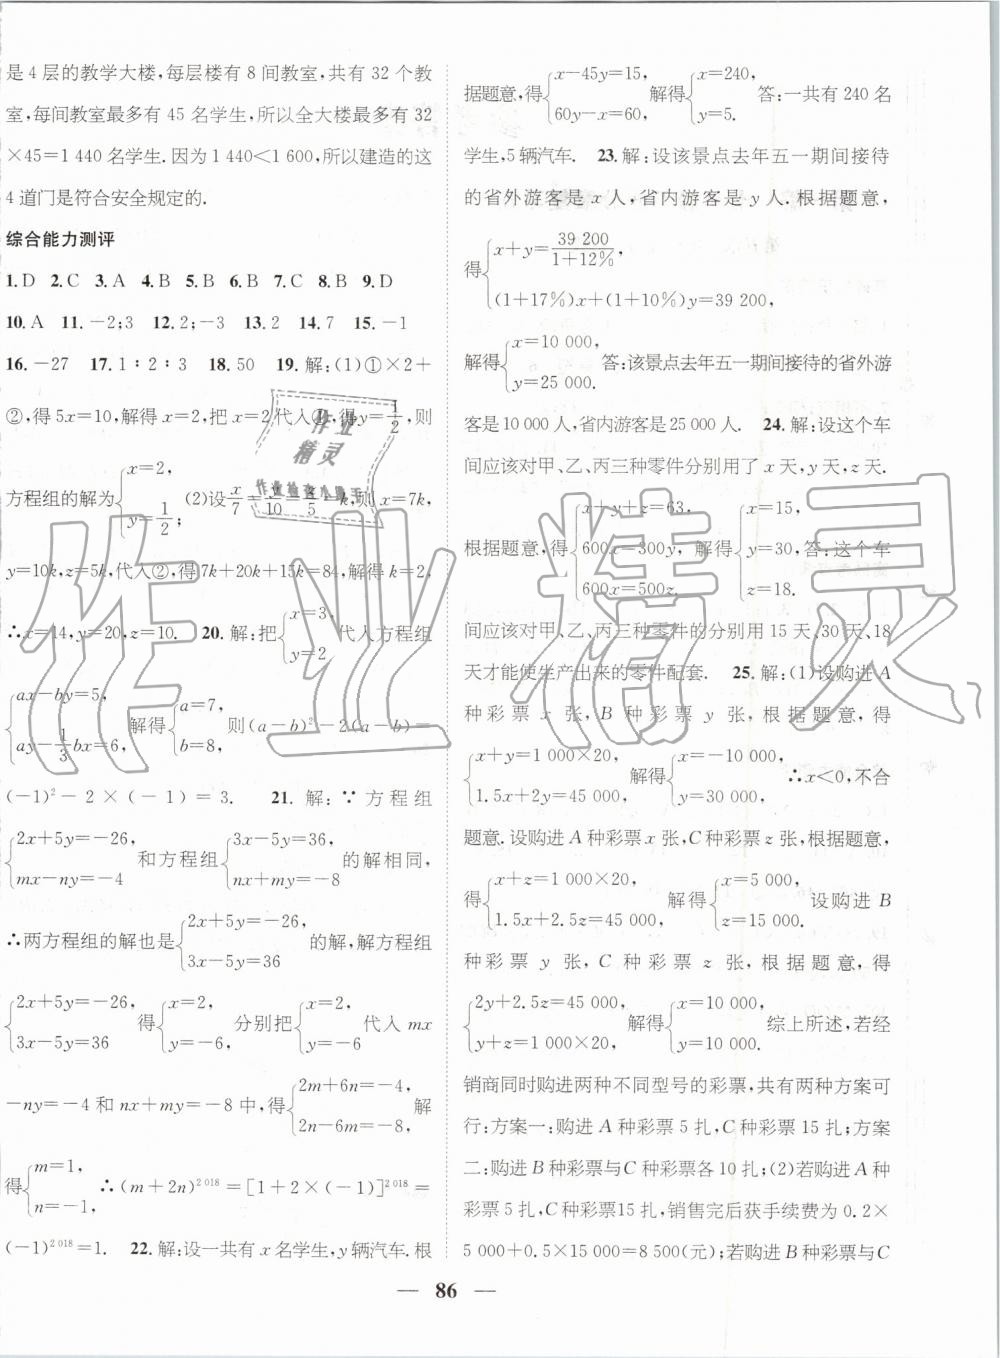 是 4 层的教学大楼,每层楼有 8 间教室,共有 32 个教
室,每间教室最多有 45 名学生,所以全大楼最多有 32
×45=1 440 名学生.因为 1 440<1 600,所以建造的这
4 道门是符合安全规定的.
综合能力测评
1.D 2.C 3.A 4.B 5.B 6.B 7.C 8.B 9.D
10.A 11.-2;3 12.2;-3 13.2 14.7 15.-1
16.-27 17.1∶2∶3 18.50 19.解:(1)①×2+
②,得 5x=10,解得 x=2,把 x=2代入①,得 y=1/2,则
方程组的解为{x=2, y=1/2; (2)设x/7=y/10=z/5=k,则 x=7k,
y=10k,z=5k,代入②,得7k+20k+15k=84,解得 k=2,
∴x=14,y=20,z=10. 20.解:把{x=3, y=2 代入方程组
{ax-by=5, ay-1/3bx=6,解得{a=7, b=8,则(a-b)²-2(a-b)=
(-1)²-2×(-1)=3. 21.解:∵方程组
{2x+5y=-26, mx-ny=-4 和方程组{3x-5y=36, nx+my=-8 的解相同,
∴两方程组的解也是{2x+5y=-26, 3x-5y=36 的解,解方程组
{2x+5y=-26, 3x-5y=36 得{x=2, y=-6, 分别把{x=2, y=-6 代入 mx
-ny=-4 和 nx+my=-8 中,得{2m+6n=-4, 2n-6m=-8, 解
得{m=1, n=-1, ∴(m+2n)²⁰¹⁸=[1+2×(-1)]²⁰¹⁸=
(-1)²⁰¹⁸=1. 22.解:设一共有 x 名学生,y辆汽车.根
据题意,得{x-45y=15, 60y-x=60, 解得{x=240, y=5. 答:一共有 240 名
学生,5 辆汽车. 23.解:设该景点去年五一期间接待
的省外游客是 x 人,省内游客是 y 人.根据题意,
得{x+y=39 200/(1+12%), (1+17%)x+(1+10%)y=39 200,
解得{x=10 000, y=25 000. 答:该景点去年五一期间接待的省外游
客是 10 000 人,省内游客是 25 000 人. 24.解:设这个车
间应该对甲、乙、丙三种零件分别用了 x 天,y天,z天.
根据题意,得{x+y+z=63, 600x=300y, 600x=500z. 解得{x=15, y=30, z=18. 答:这个车
间应该对甲、乙、丙三种零件的分别用 15 天、30 天、18
天才能使生产出来的零件配套. 25.解:(1)设购进 A
种彩票 x 张,B 种彩票 y 张,根据题意,得
{x+y=1 000×20, 1.5x+2y=45 000, 解得{x=-10 000, y=30 000, ∴x<0,不合
题意.设购进 A 种彩票 x 张,C 种彩票 z 张,根据题意,
得{x+z=1 000×20, 1.5x+2.5z=45 000, 解得{x=5 000, z=15 000. 设购进 B
种彩票 y 张,C 种彩票 z 张,根据题意,得
{2y+2.5z=45 000, y+z=1 000×20, 解得{x=10 000, y=10 000. 综上所述,若经
销商同时购进两种不同型号的彩票,共有两种方案可
行:方案一:购进 A 种彩票 5 扎,C种彩票 15 扎;方案
二:购进 B 种彩票与 C 种彩票各 10 扎;(2)若购进 A 种
彩票 5 扎,C 种彩票15 扎,销售完后获手续费为 0.2×
5 000+0.5×15 000=8 500(元);若购进 B 种彩票与 C
— 86 —
作业精灵
作业
精灵